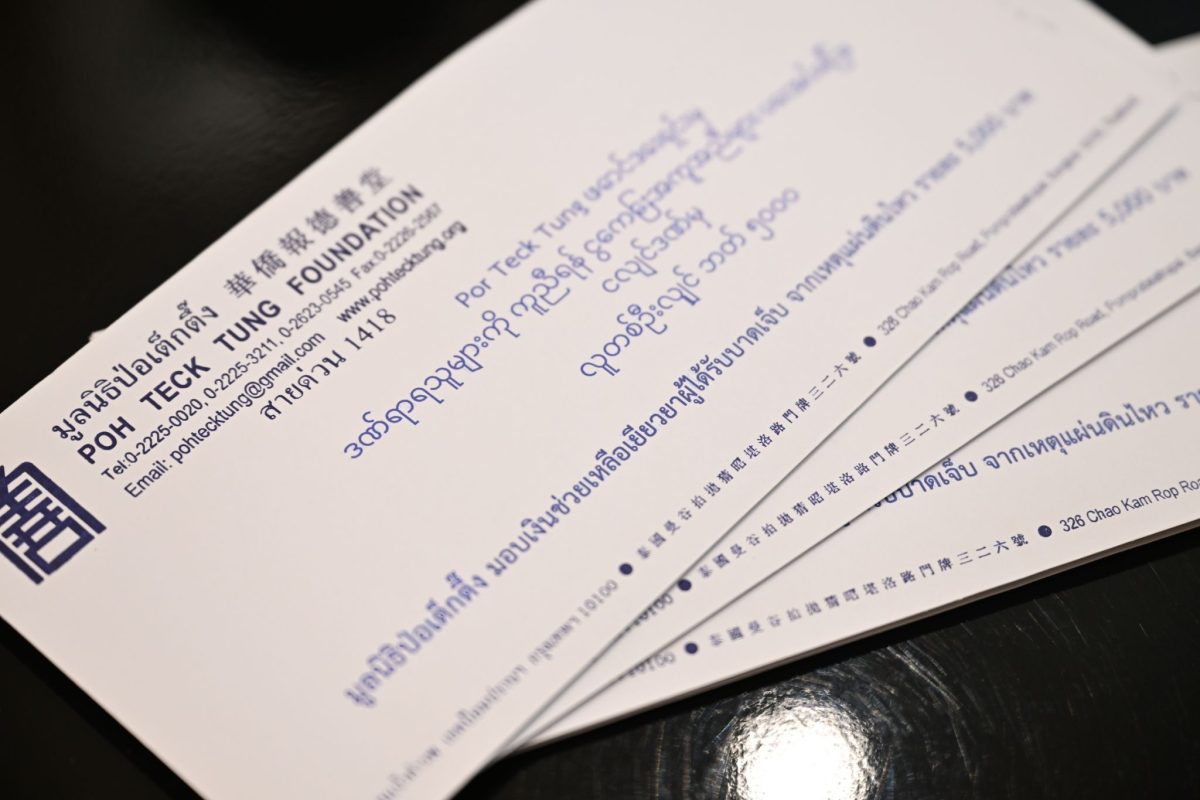 มูลนิธิป่อเต็กตึ๊ง 華僑報德善堂
POH TECK TUNG FOUNDATION
Tel:0-2225-0020, 0-2225-3211, 0-2623-0545 Fax:0-2226-2567
Email: pohtecktung@gmail.com www.pohtecktung.org
สายด่วน 1418
Por Teck Tung ဖောင်ဒေးရှင်းမှ
ဒဏ်ရာရသူများကို ကူညီရန် ငွေကြေးအကူအညီများ
ငလျင်ဒဏ်မှ
လူတစ်ဦးလျှင် ဘတ် ၅၀၀၀
มูลนิธิป่อเต็กตึ๊ง มอบเงินช่วยเหลือเยียวยาผู้ได้รับบาดเจ็บ จากเหตุแผ่นดินไหว รายละ 5,000 บาท
10100 ● 泰國曼谷拍拋猜昭堪洛路門牌三二六號 ● 326 Chao Kam Rop Road,
แผ่นดินไหว รายละ 5,000 บาท
10100 ● 泰國曼谷拍拋猜昭堪洛路門牌三二六號 ● 326 Chao Kam Rop Road,
บาดเจ็บ จากเหตุแผ่นดินไหว
10100 ● 泰國曼谷拍拋猜昭堪洛路門牌三二六號 ● 326 Chao Kam Rop